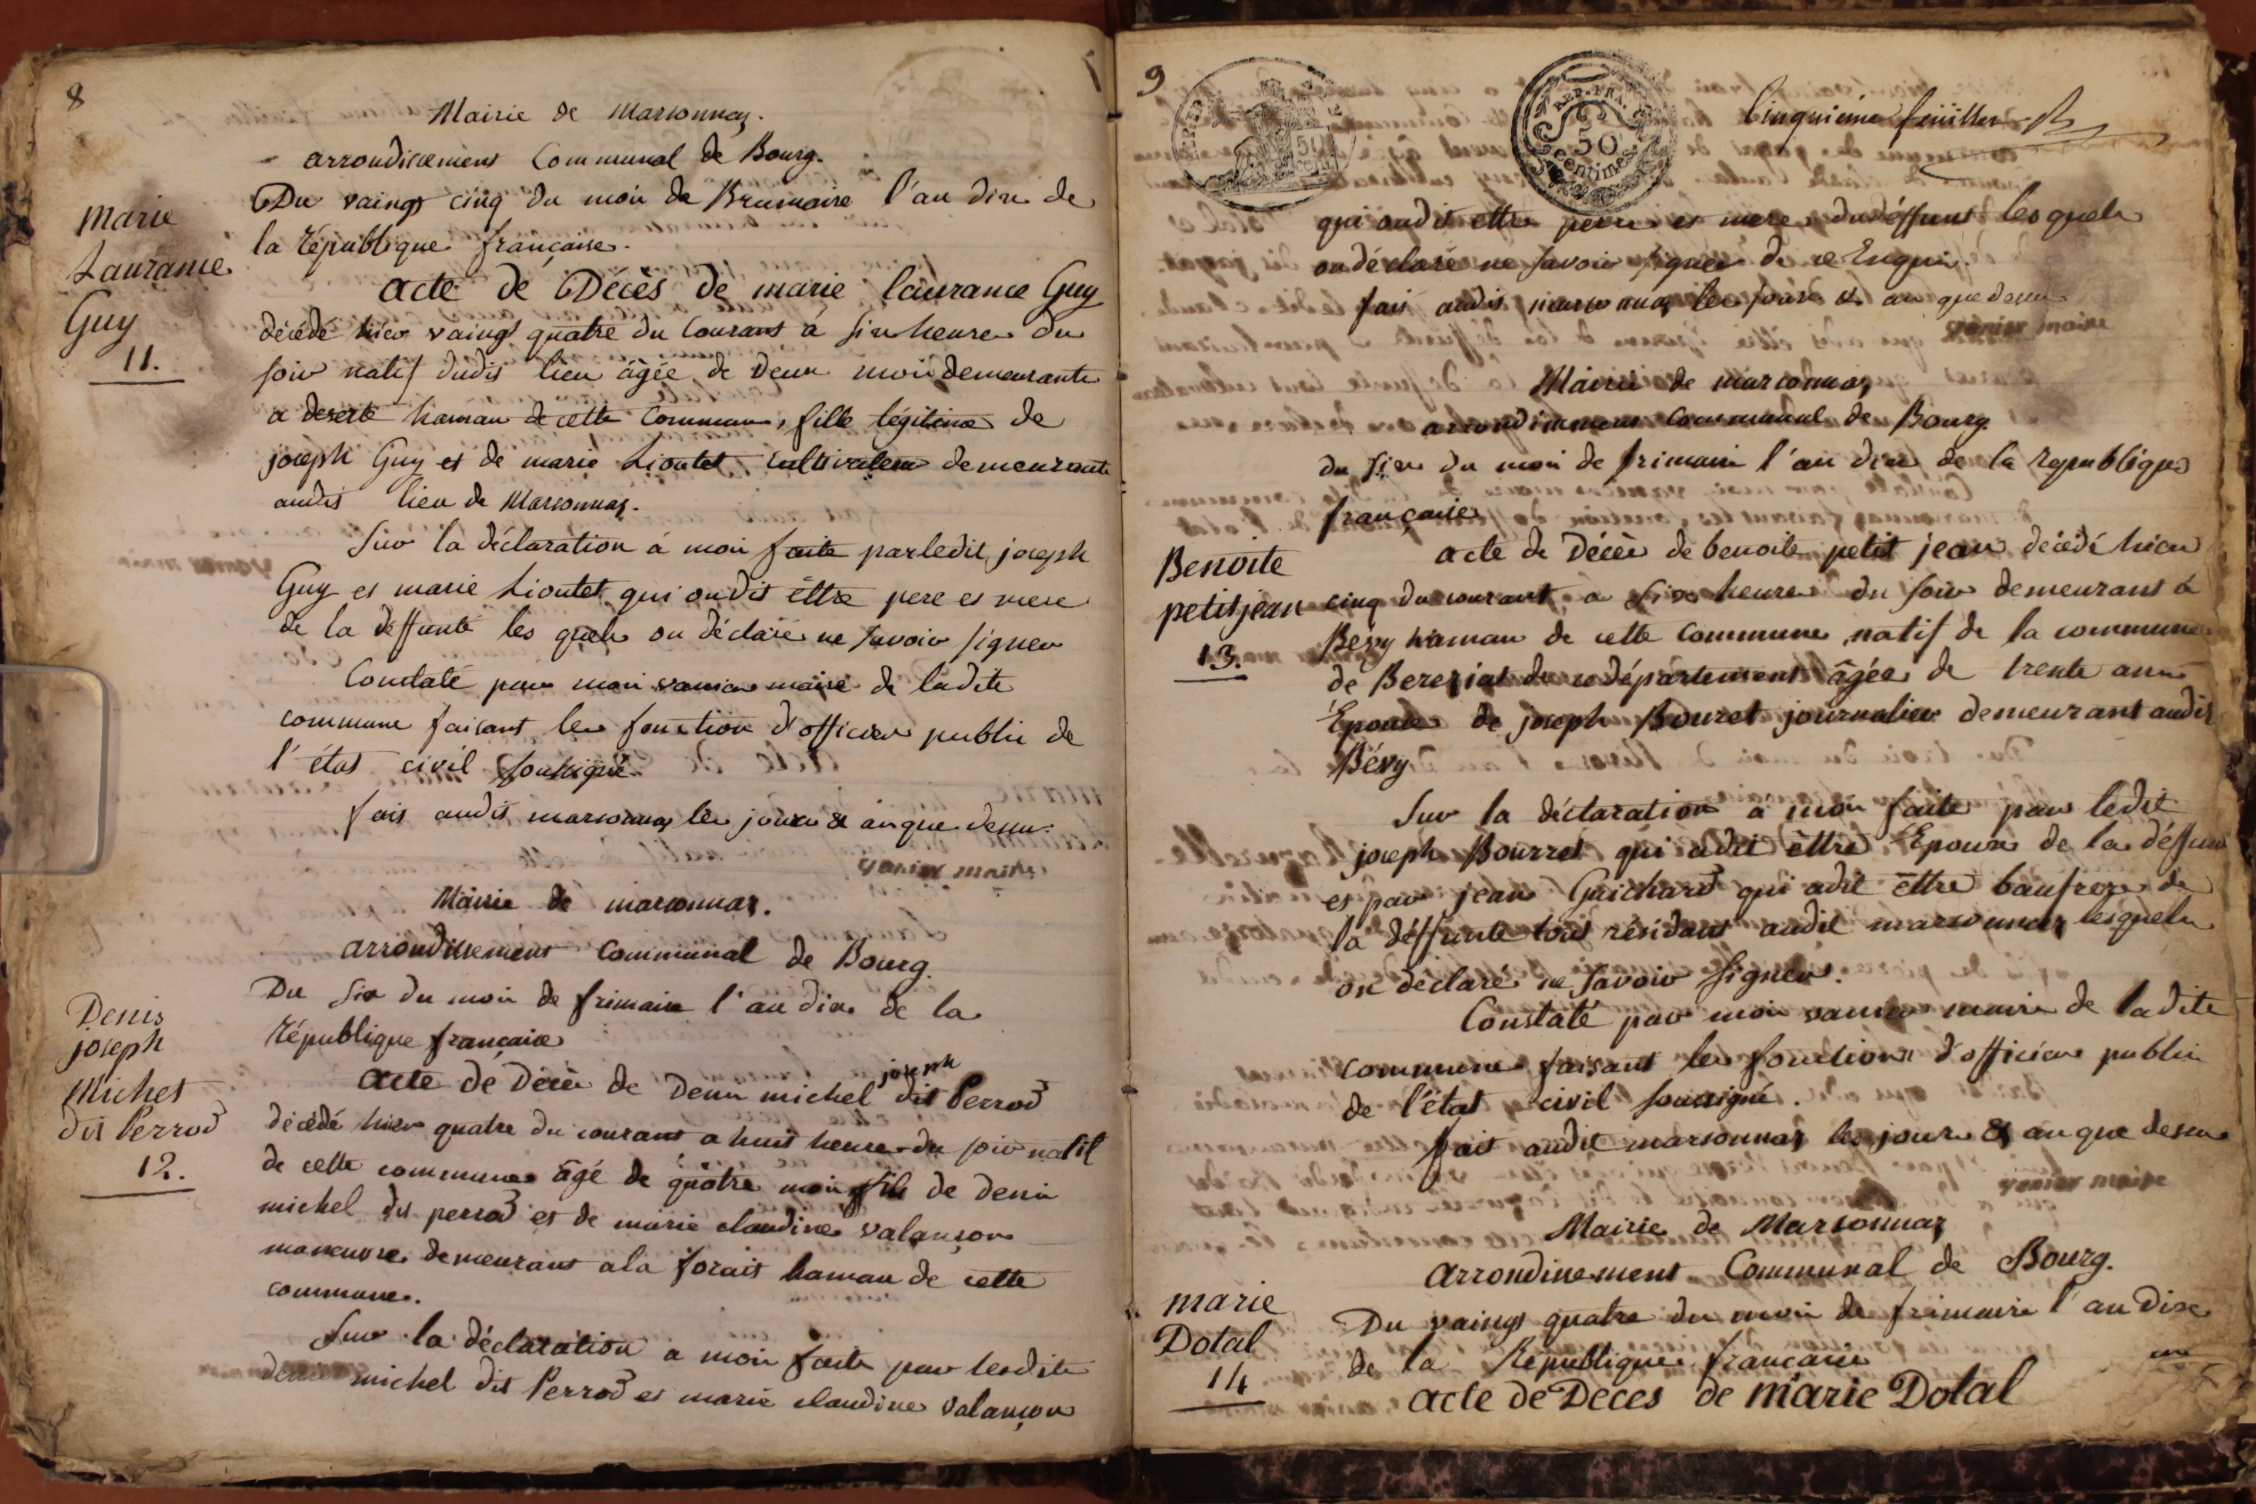 8
Mairie de Marsonnay.
arrondissement Communal de Bourg.
Du vaingt cinq du mois de Brumaire l'an dix de
la république française.
Marie
Laurance
Guy
11.
acte de Décès de marie laurance Guy
décédé hier vaingt quatre du Courant á six heures du
soir natif dudit lieu âgée de deux mois demeurante
a deserte hamau de cette Commune, fille légitime de
joseph Guy et de marie Lioutet Cultivateur demeurante
audit lieu de Marsonnay.
Sur la déclaration á moi faite par ledit joseph
Guy et marie Lioutet qui ondit êttre pere et mere
de la deffunte les quels on déclaré ne savoir signer
Constaté par moi vanier maire de ladite
commune faisant les fonction d'officier public de
l'état civil soussigné.
fait audit marsonnay les jours & an que dessus.
vanier maire
Mairie de marsonnay.
arrondissement Communal de Bourg.
Du six du mois de frimaire l'an dix de la
république française
Denis
joseph
Michel
dit Perrod
12.
acte de Décès de Denis michel joseph dit Perrod
décédé hier quatre du courant a huit heures du soir natif
de cette commune âgé de quâtre mois fils de denis
michel dit perrod et de marie claudine valançon
maneuvre demeurant ala forait hamau de cette
commune.
Sur la déclaration a moi faite par lesdits
denis michel dit Perrod et marie claudine valançon
9
REP. FRA.
50
centimes
Cinquieme feüillet
qui ondit ettre pere et mere du déffunt les quels
on déclaré ne savoir signer de ce Enquis.
fait audit marsonnay les jours & an que dessus
vanier maire
Mairie de marsonnay
arrondissement Communal de Bourg
du six du mois de frimaire l'an dix de la republique
française
Benoite
petitjean
13.
acte de Décès de benoite petit jean décédé hier
cinq du courant a six heures du soir demeurant à
Bévy hamau de cette Commune natif de la commune
de Bereziat de ce département âgée de trente ans
Epouse de joseph Bourret journalier demeurant audit
Bévy
Sur la déclaration à moi faite par ledit
joseph Bourret qui adit êttre Epoux de la déffunte
et par jean Guichard qui adit êttre baufrere de
la déffunte tous résidant audit marsonnay lesquels
on déclaré ne savoir signer.
Constaté par moi vanier maire de ladite
commune faisant les fonctions d'officier public
de l'état civil soussigné.
fait audit marsonnay les jours & an que dessus
vanier maire
Mairie de Marsonnay
arrondissement Communal de Bourg.
marie
Dotal
14
Du vaingt quatre du mois de frimaire l'an dix
de la République française
acte de Deces de marie Dotal